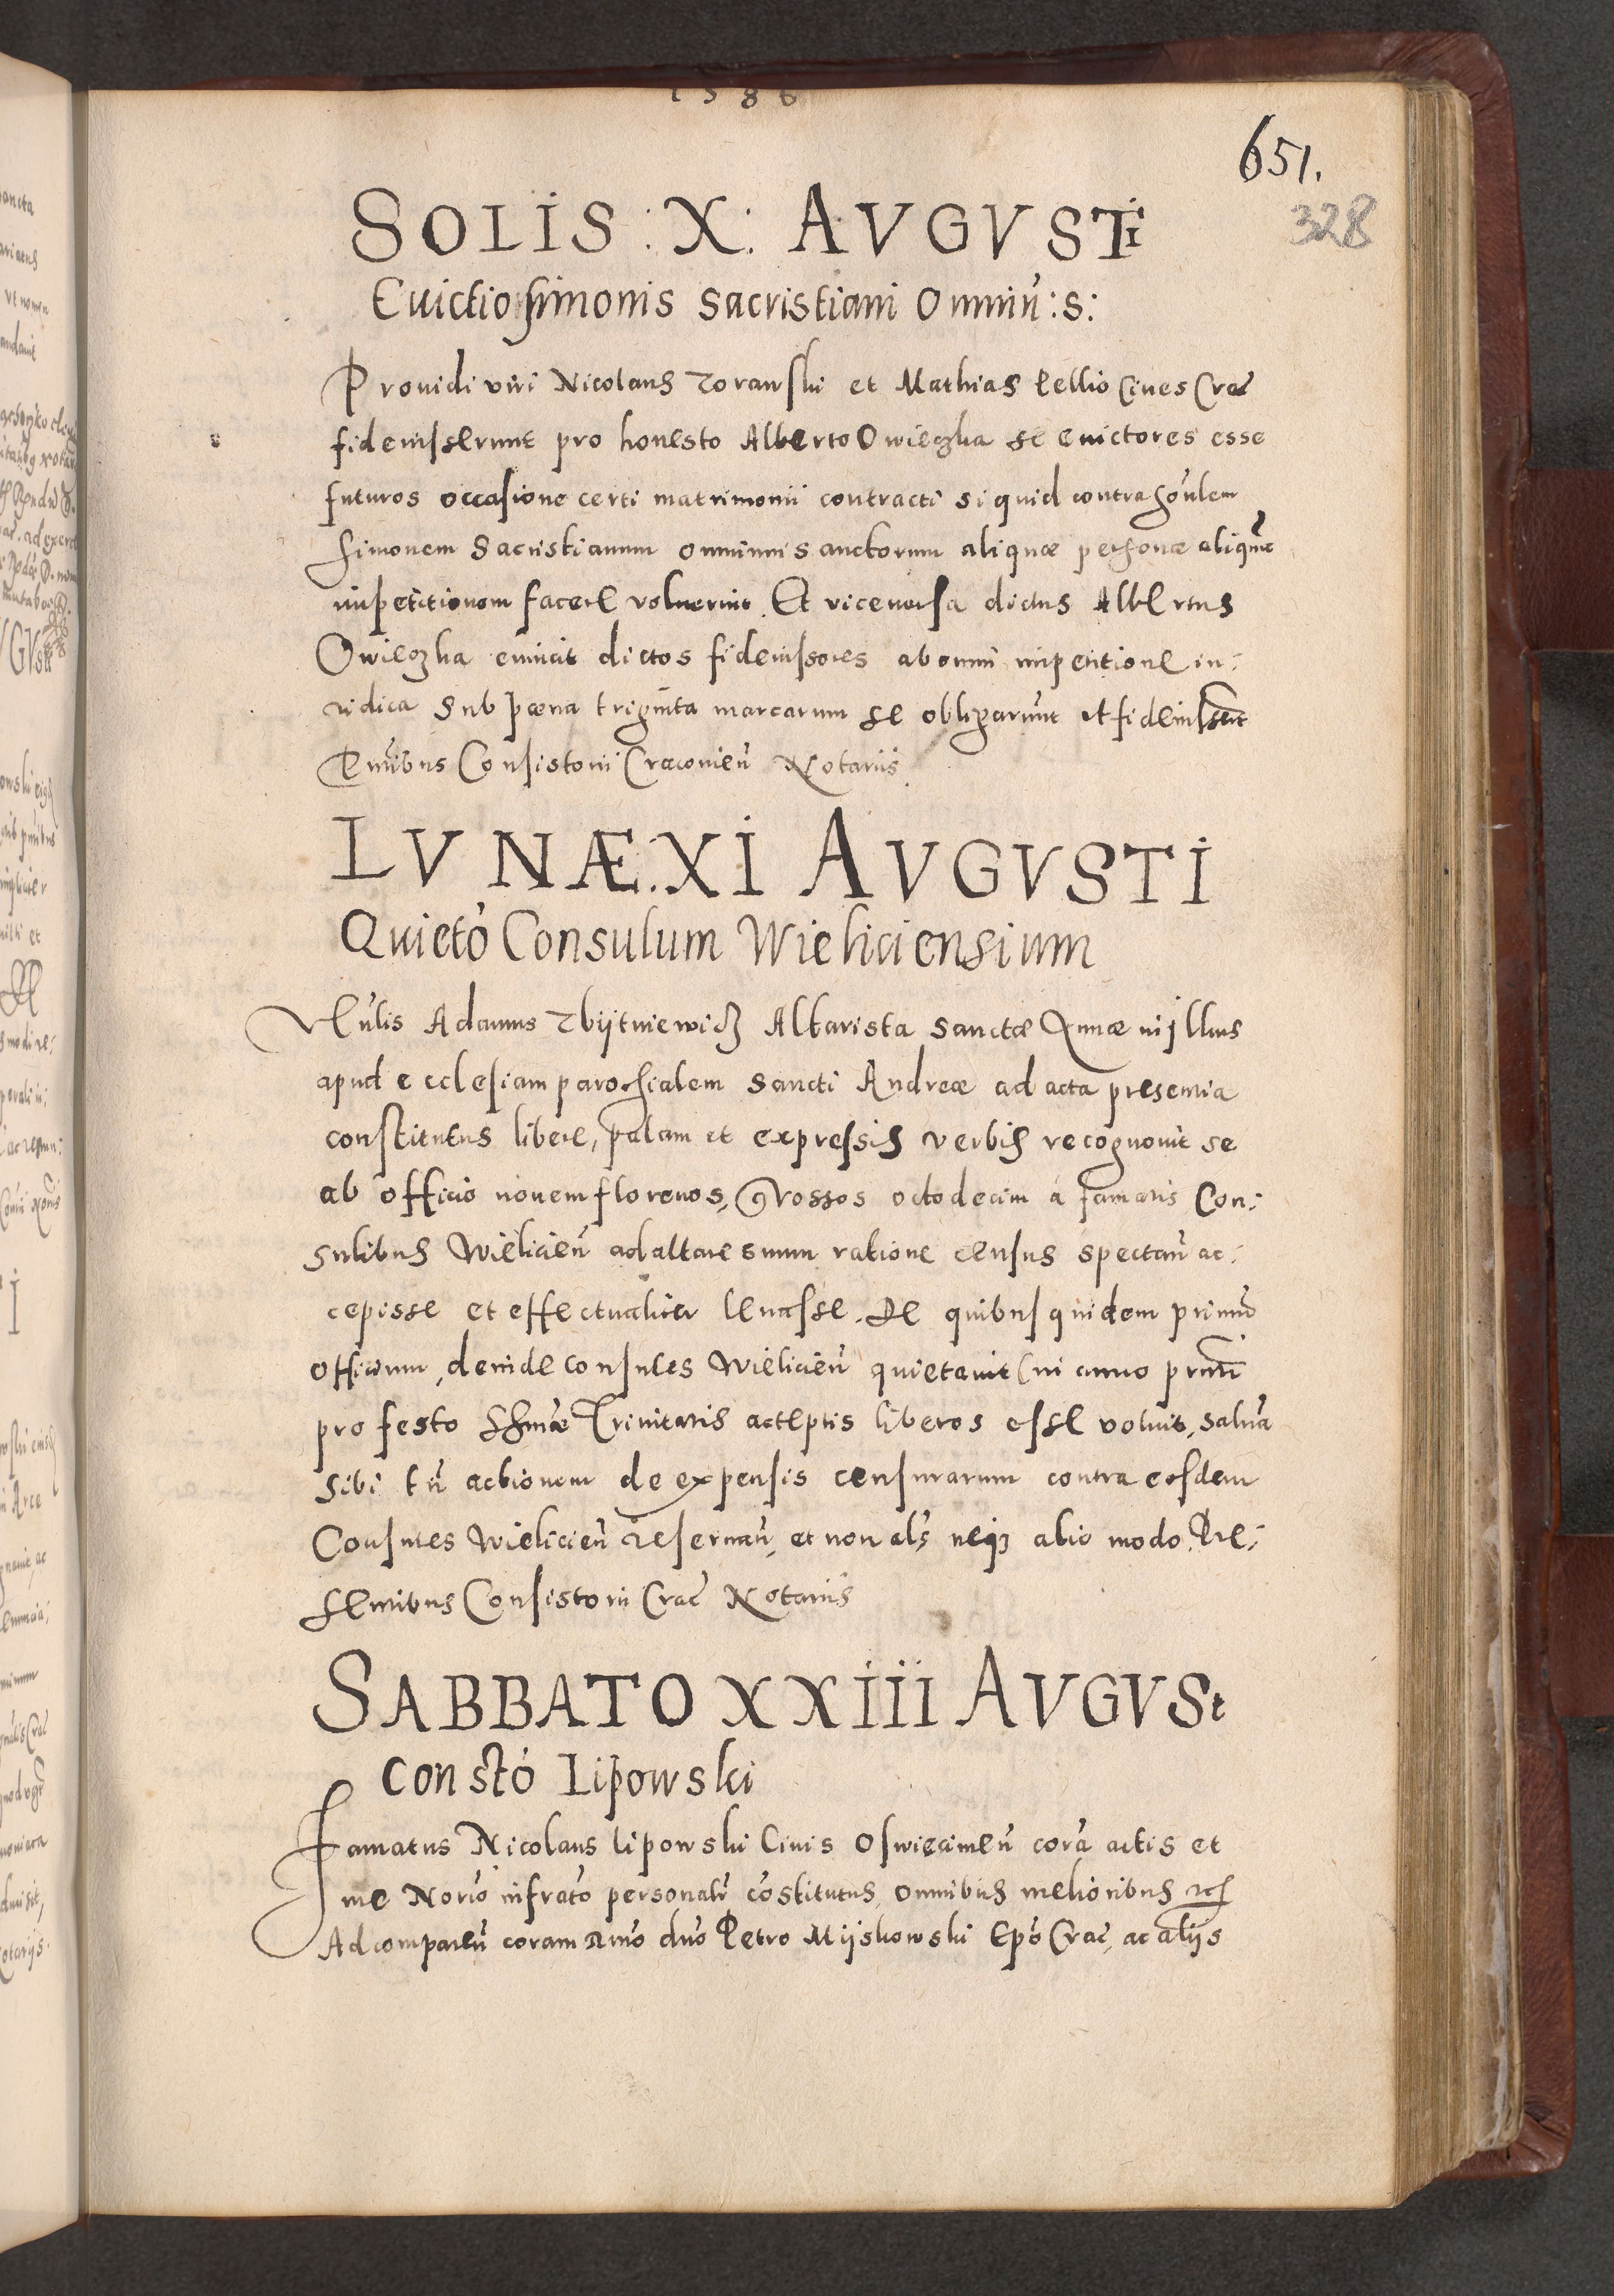 1586
651.
328
SOLIS : X : AVGVSTi
Euictio Simonis Sacristiani Omniū : S :
Prouidi viri Nicolaus Toranski et Mathias Lellio Ciues Crac̄
fideiusserunt pro honesto Alberto Owieczka se euictores esse
futuros occasione certi matrimonii contracti si quid contra
Simonem Sacristianum omnium sanctorum aliquæ personæ aliquā
impetitionem facere voluerint. Et viceuersa dictus Albertus
Owieczka euincit dictos fideiussores ab omni impetitione iu:
ridica sub pœna triginta marcarum se obligarunt et fideiusserūt
Cracouieñ Notariis
LVNÆ : XI AVGVSTI
Quietō Consulum Wieliciensium
Adamus Altarista Sanctæ Annæ in
apud ecclesiam parochialem Sancti Andreæ ad acta presentia
constitutus libere, palam et expressis verbis recognouit se
ab officio nouem florenos, Grossos octodecim a famatis Con:
sulibus Wielicieñ ad altare suum ratione census spectañ ac:
cepisse et effectualiter leuasse. De quibus quidem primū
officium, deinde consules Wielicieñ quietauit in anno
pro festo Trinitatis acceptis liberos esse voluit, salua
sibi tñ actionem de expensis censurarum contra eosdem
Consules Wielicieñ reseruañ, et non als neq3 alio modo. Pre:
sentibus Consistorii Crac̄ Notariis
SABBATO XXIII AVGVSt
Constō Lipowski
Famatus Nicolaus Lipowski Ciuis Oswiecimeñ corā actis et
me Norīo infratō personalr̄ cōstitutus omnibus melioribus
Ad compareñ coram Rmō dnō Petro Mijskowski Epō Crac̄, ac aliis